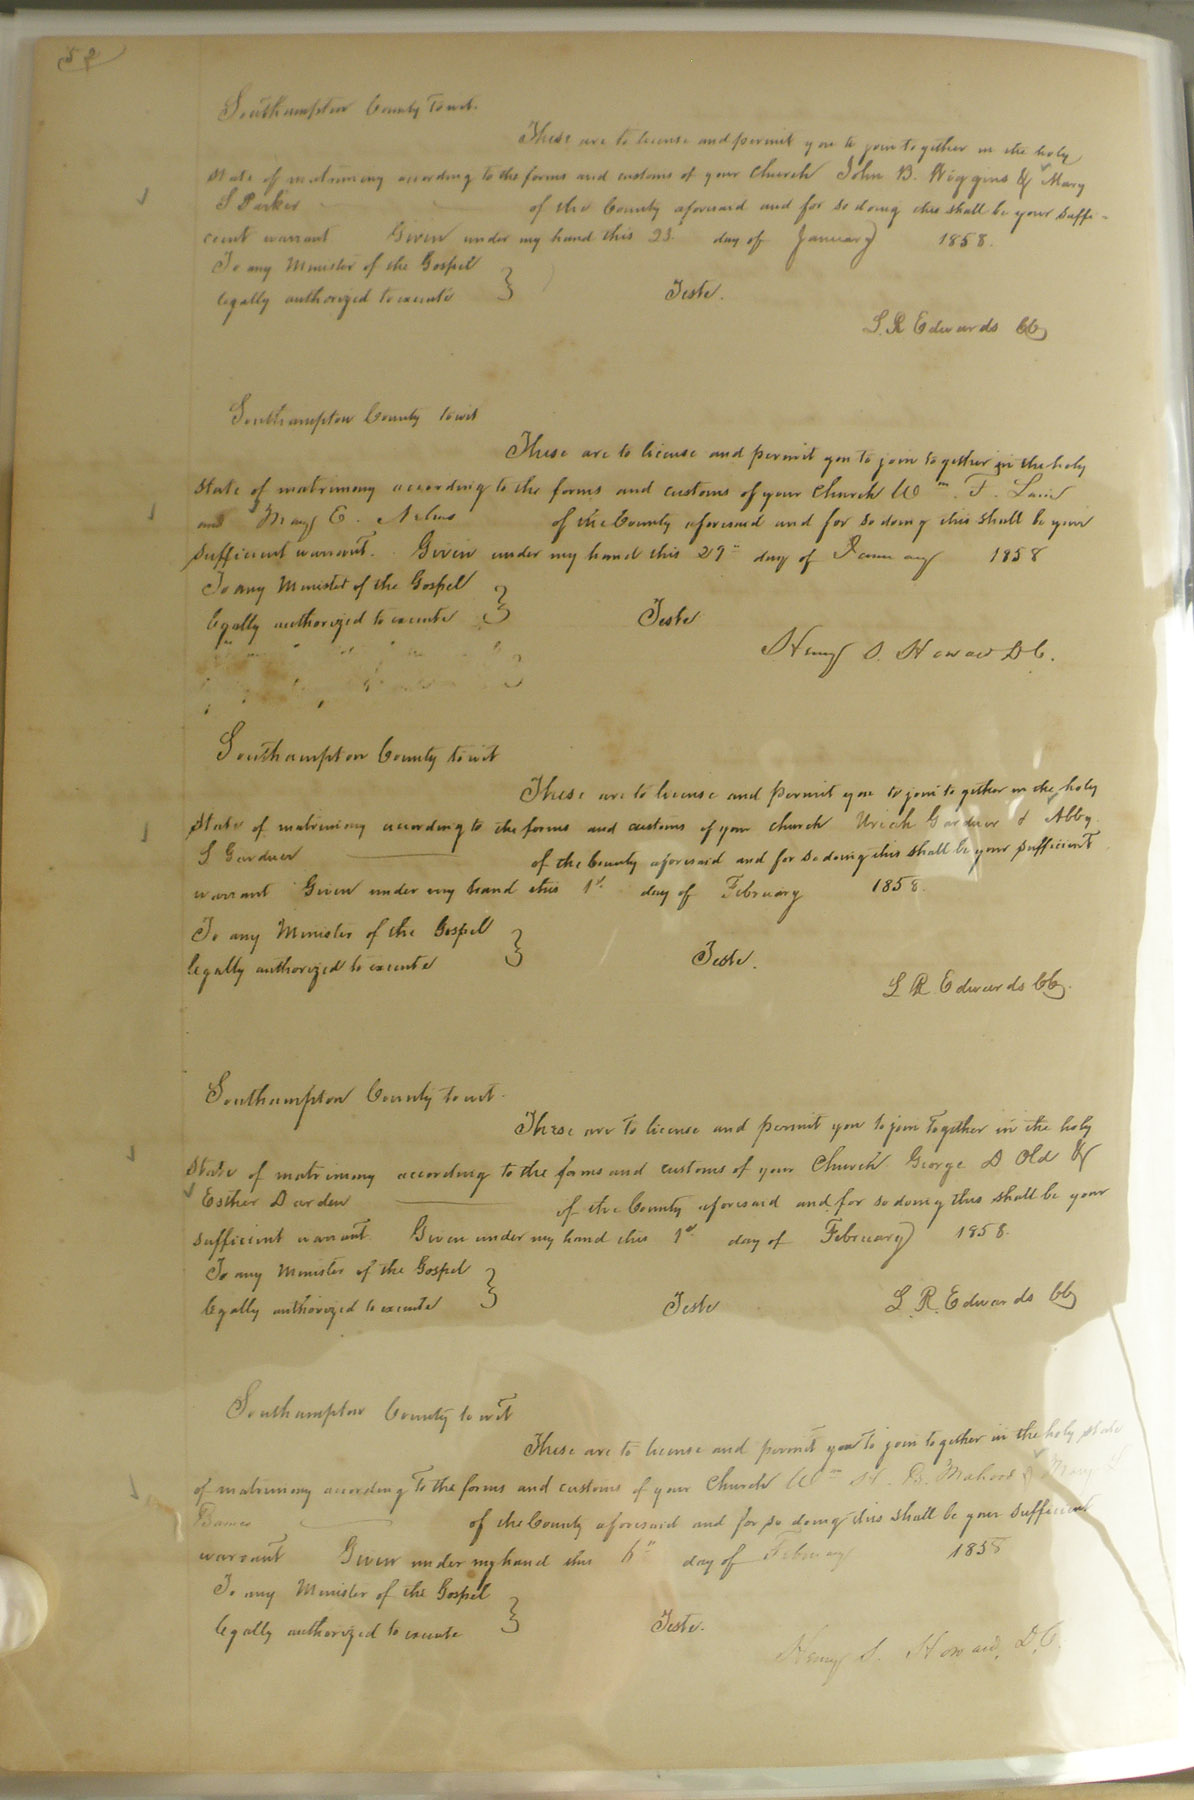 52
Southampton County to wit.
These are to license and permit you to join together in the holy
state of matrimony according to the forms and customs of your Church John B. Wiggins & Mary
S Parker of the County aforesaid and for so doing this shall be your suffi-
cient warrant Given under my hand this 23. day of January 1858.
To any Minister of the Gospel
legally authorized to execute } Teste.
L. R Edwards CC
Southampton County to wit
These are to license and permit you to join together in the holy
state of matrimony according to the forms and customs of your Church Wm. F. Lain
and Mary E. of the County aforesaid and for so doing this shall be your
sufficient warrant. Given under my hand this 29" day of January 1858
To any Minister of the Gospel
legally authorized to execute } Teste
Henry S. Howard D C.
Southampton County to wit
These are to license and permit you to join together in the holy
state of matrimony according to the forms and customs of your church Uriah Gardner & Abby
S Gardner of the County aforesaid and for so doing this shall be your sufficient
warrant Given under my hand this 1st day of February 1858.
To any Minister of the Gospel
legally authorized to execute } Teste.
L R. Edwards CC.
Southampton County to wit.
These are to license and permit you to join together in the holy
state of matrimony according to the forms and customs of your Church George D Old &
Esther Darden of the County aforesaid and for so doing this shall be your
sufficient warrant. Given under my hand this 1st day of February 1858.
To any Minister of the Gospel
legally authorized to execute } Teste L. R. Edwards CC
Southampton County to wit
These are to license and permit you to join together in the holy state
of matrimony according to the forms and customs of your Church Wm H. B. Mahood & Mary
of the County aforesaid and for so doing this shall be your sufficient
warrant Given under my hand this 6" day of February 1858
To any Minister of the Gospel
legally authorized to execute } Teste.
Henry S. Howard, D.C.